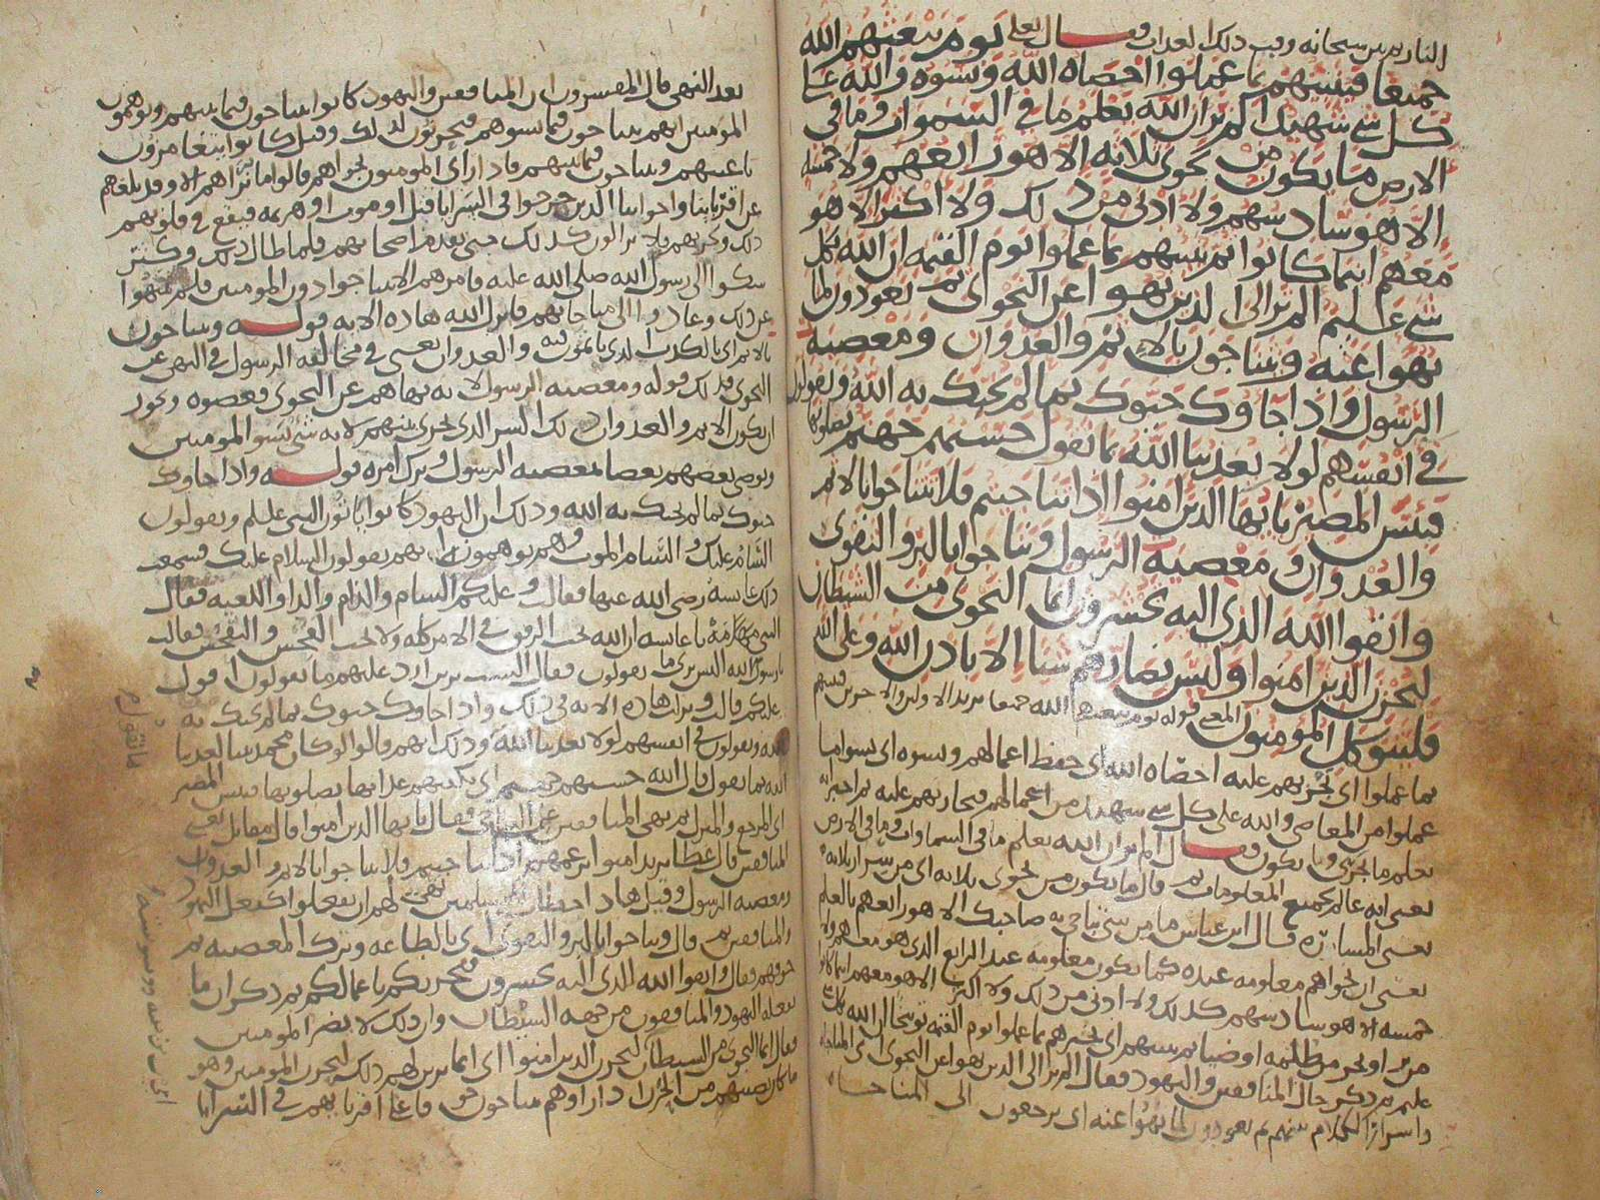 النار يريد سبحانه وقت ذلك العذاب فقال تعلى يوم يبعثهم الله
جميعا فينبئهم بما عملوا احصاه الله ونسوه والله على
كل شي شهيد الم تر ان الله يعلم ما في السموات وما في
الارض ما يكون من نجوى ثلاثه الا هو رابعهم ولا خمسة
الا هو سادسهم ولا ادنى من ذلك ولا اكثر الا هو
معهم اينما كانوا ثم ينبئهم بما عملوا يوم القيمه ان الله بكل
شي عليم الم تر الى الذين نهوا عن النجوى ثم يعودون لما
نهوا عنه ويتناجون بالاثم والعدوان ومعصيه
الرسول واذا جاوك حيوك بما لم يحيك به الله ويقولون
في انفسهم لولا يعذبنا الله بما نقول حسبهم جهنم يصلونها
فبئس المصير يا يها الذين امنوا اذا تناجيتم فلا تتناجوا بالاثم
والعدوان ومعصيه الرسول وتناجوا بالبر والتقوى
واتقوا الله الذي اليه تحشرون انما النجوى من الشيطان
ليحزن الذين امنوا وليس بضارهم شيا الا باذن الله وعلى الله
فليتوكل المومنون المعنى قوله يوم يبعثهم الله جميعا يريد الاولين والاخرين فينبئهم
بما عملوا اي يخبرهم عليه احصاه الله اي حفظ اعمالهم ونسوه اي نسوا ما
عملوا من المعاصي والله على كل شي شهيد من اعمالهم فيجازيهم عليه ثم اخبر انه
يعلم ما يجري وما يكون فقال الم تر ان الله يعلم ما في السماوات وما في الارض
يعني انه عالم بجميع المعلومات ثم قال ما يكون من نجوى ثلاثه اي من سرار ثلاثة
يعني المسارة قال ابن عباس ما من شي تناجي به صاحبك الا هو رابعهم بالعلم
يعني ان نجواهم معلومه عنده كما يكون معلومه عند الرابع الذي هو معهم ولا
خمسه الا هو سادسهم كذلك ولا ادنى من ذلك ولا اكثر الا هو معهم اينما كانوا
ثم ينبئهم اي يخبرهم بما عملوا يوم القيمه ان الله بكل شي
عليم ثم ذكر حال المنافقين واليهود فقال الم تر الى الذين نهوا عن النجوى اي المناجاه
واسرار الكلام بينهم ثم يعودون لما نهوا عنه اي يرجعون الى المناجاة
بعد النهي قال المفسرون ان المنافقين واليهود كانوا يتناجون فيما بينهم ويوهمون
المومنين انهم يتناجون فيما يسوهم فيحزنون لذلك وقيل كانوا يتغامزون
باعينهم ويتناجون فيما بينهم فاذا راى المومنون نجواهم قالوا ما نراهم الا وقد بلغهم
عن اقربائنا واخواننا الذين خرجوا في السرايا قتل او موت او هزيمه فيقع في قلوبهم
ذلك ويحزنهم فلا يزالون كذلك حتى يقدم اصحابهم فلما طال ذلك وكثر
شكوا الى رسول الله صلى الله عليه فامرهم الا يتناجوا دون المومنين فلم ينتهوا
عن ذلك وعادوا الى مناجاتهم فانزل الله هاذه الايه قوله ويتناجون
بالاثم اي بالكذب الذي ياثمون فيه والعدوان يعني في مخالفة الرسول في النهي عن
النجوى فذلك قوله ومعصيه الرسول لانه نهاهم عن النجوى فعصوه ويجوز
ان يكون الاثم والعدوان ذلك السر الذي يجري بينهم لانه شي يسو المومنين
ويوصي بعضهم بعضا لمعصيه الرسول وترك امره قوله واذا جاوك
حيوك بما لم يحيك به الله وذلك ان اليهود كانوا ياتون النبي عليلم ويقولون
السام عليك والسام الموت وهم يوهمونه انهم يقولون السلام عليك فسمعت
ذلك عائشه رضي الله عنها فقالت وعليكم السام والذام والدا واللعنه فقال
النبي يا عائشه ان الله يحب الرفق في الامر كله ولا يحب الفحش والتفحش فقالت
يا رسول الله اليس ترى ما يقولون فقال الست ترين ارد عليهم ما يقولون اقول
عليكم قالت ونزلت هاذه الايه في ذلك واذا جاوك حيوك بما لم يحيك به
الله ويقولون في انفسهم لولا يعذبنا الله وذلك انهم قالوا لو كان محمد نبيا لعذبنا
الله بما نقول قال الله حسبهم جهنم اي يكفيهم عذابها يصلونها فبئس المصير
اي المرجع والمنزل ثم نهى المنافقين فقال يا يها الذين امنوا قال مقاتل يعني
المنافقين قال عطا يريد امنوا بزعمهم اذا تناجيتم فلا تتناجوا بالاثم والعدوان
ومعصيه الرسول وقيل هاذا خطاب للمسلمين نهي لهم ان يفعلوا كفعل اليهود
والمنافقين ثم قال وتناجوا بالبر والتقوى اي بالطاعه وترك المعصيه ثم
خوفهم فقال واتقوا الله الذي اليه تحشرون فيجزيكم باعمالكم ثم ذكر ان ما
يفعله اليهود والمنافقون من جهه الشيطان وان ذلك لا يضر المومنين
فقال انما النجوى من الشيطان ليحزن الذين امنوا اي انما يزين لهم ذلك ليحزن المومنين وهو
ما كان يصيبهم من الحزن اذا راوهم يتناجون خوفا على اقربايهم في السرايا